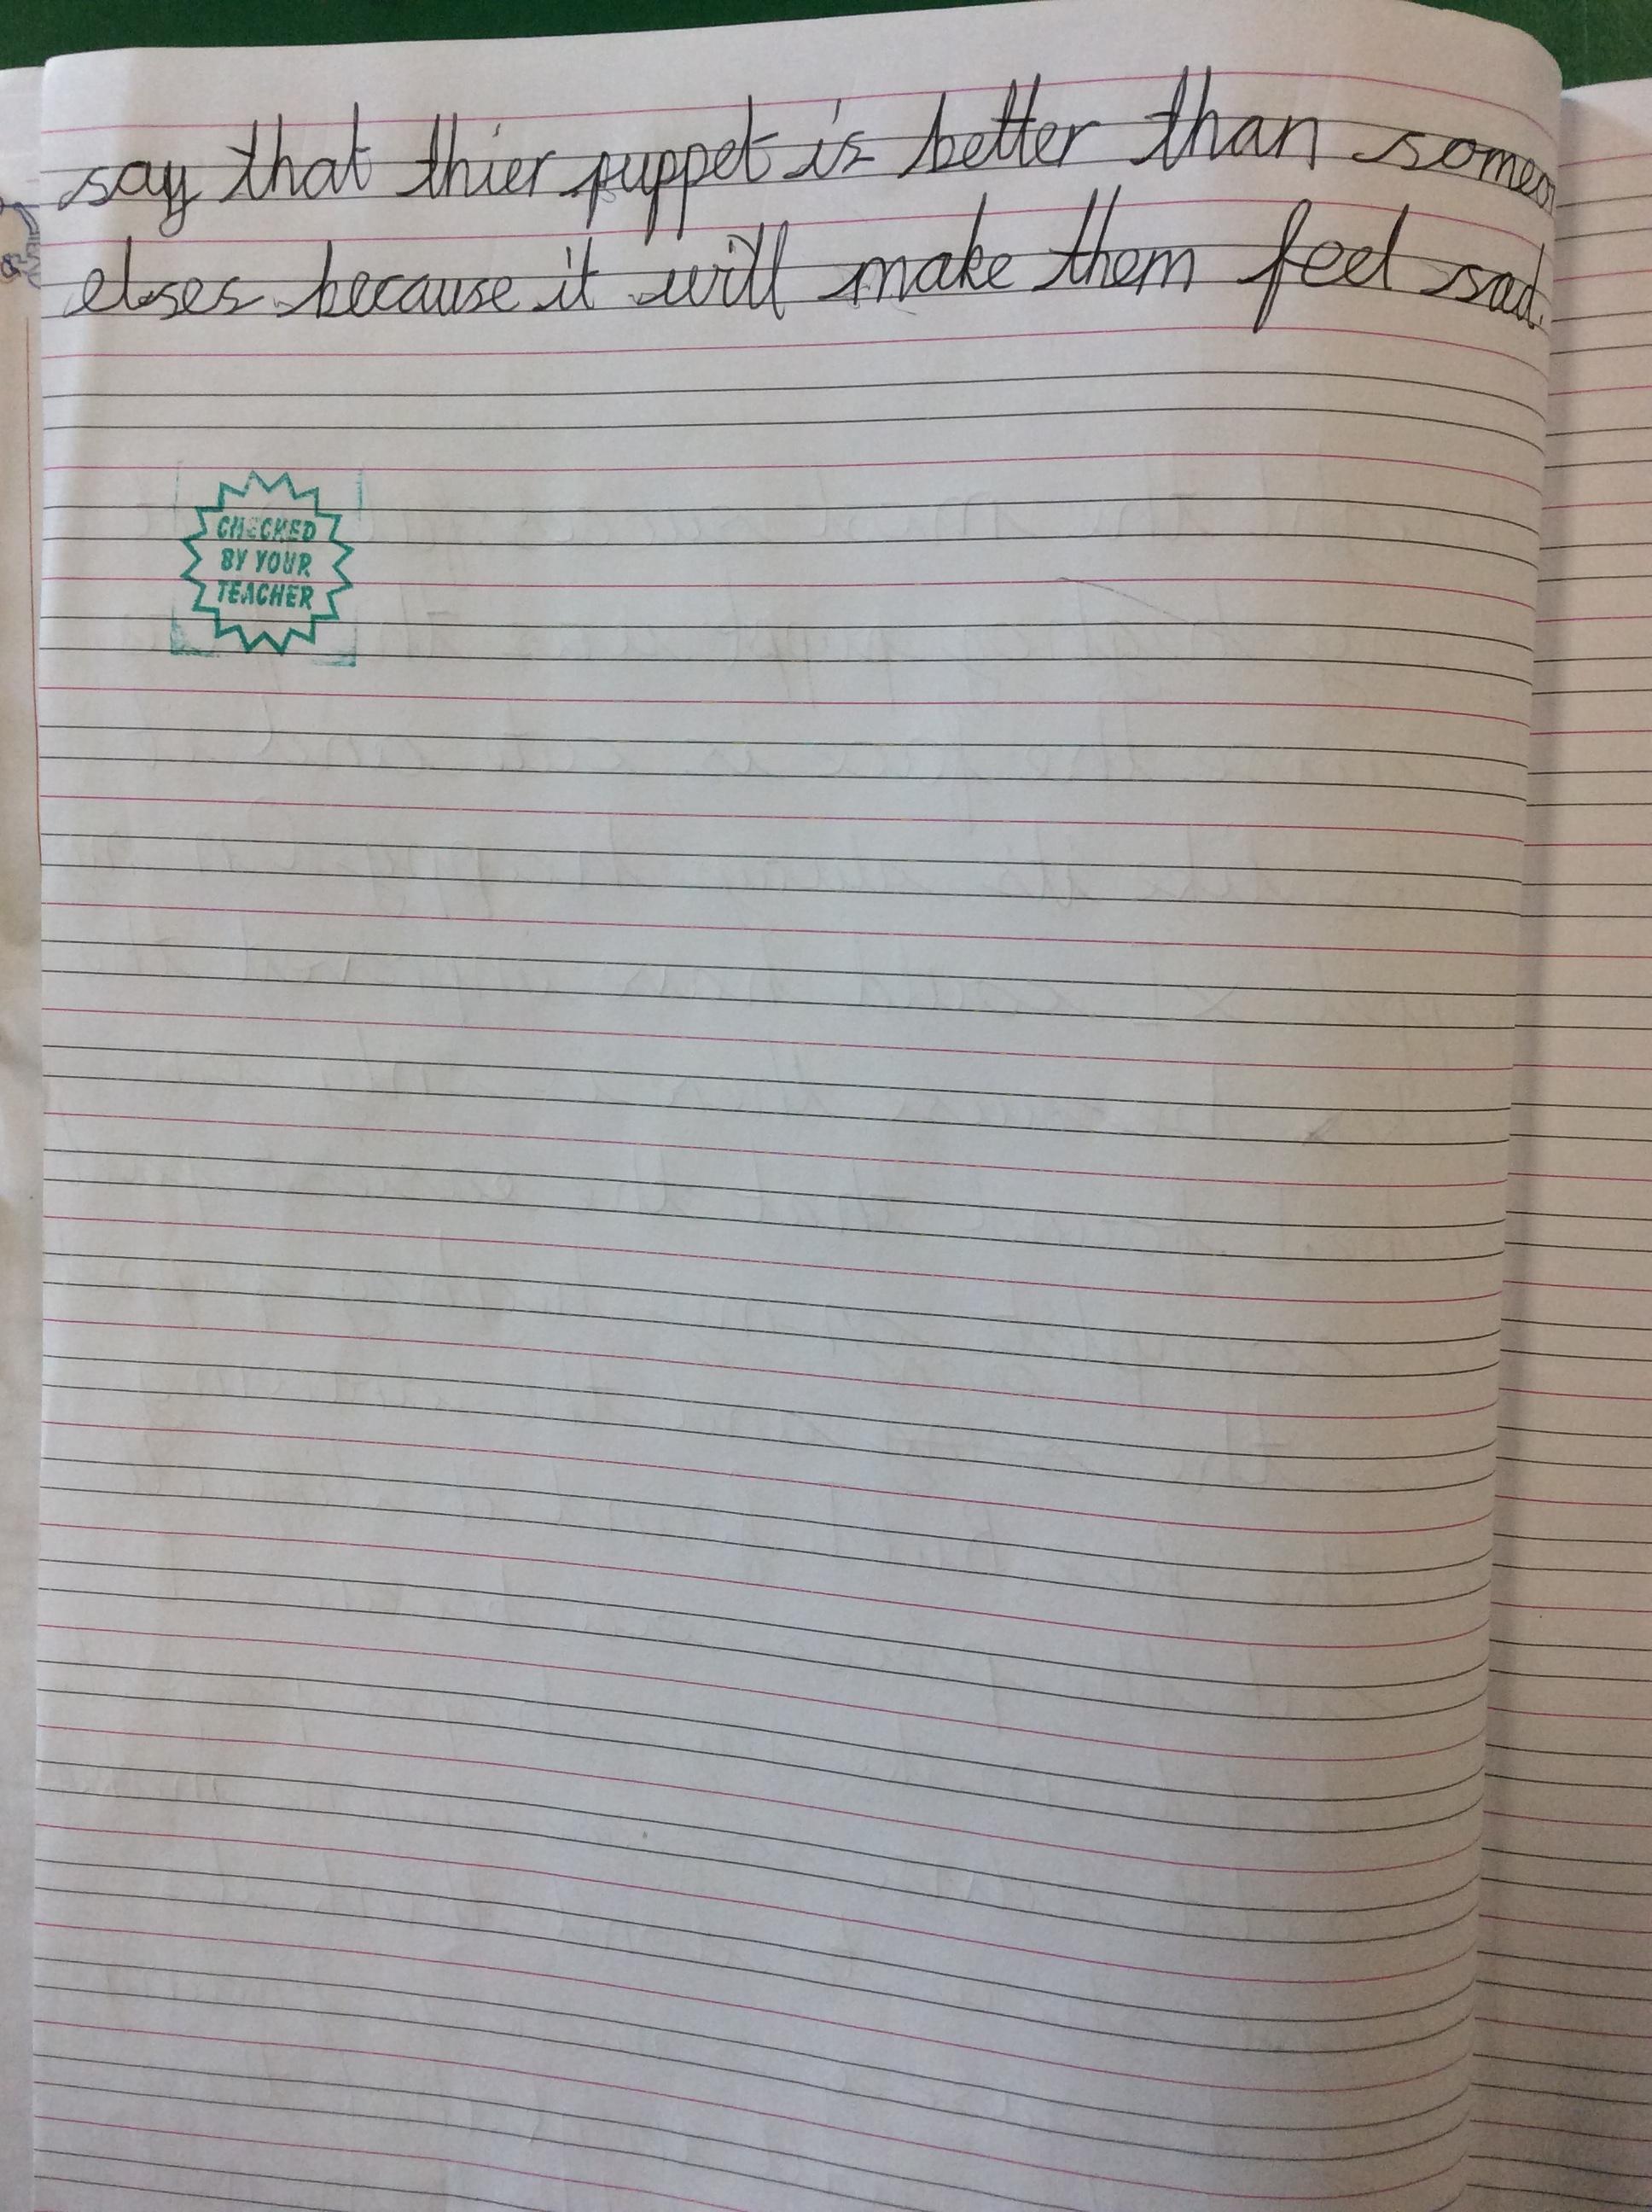 say that thier puppet is better than someon
elses because it will make them feel sad.
CHECKED
BY YOUR
TEACHER